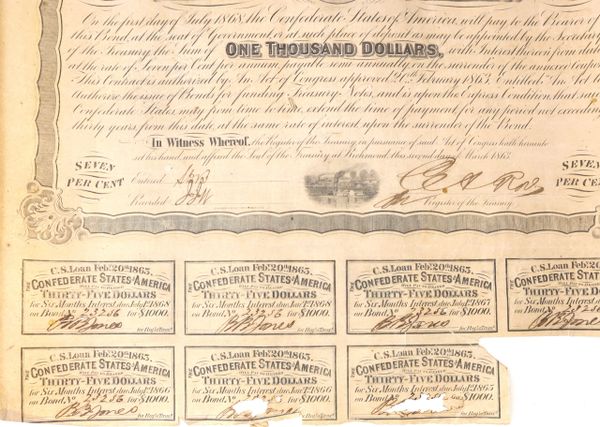 On the first day of July 1868, the Confederate States of America, will pay to the Bearer of
this Bond, at the Seat of Government, or at such place of deposit as may be appointed by the Secretary
of the Treasury, the Sum of ONE THOUSAND DOLLARS, with Interest thereon from date
at the rate of Seven per Cent per Annum, payable semi annually on the surrender of the annexed Coupons
This Contract is authorized by an Act of Congress approved 20th February 1863, Entitled "An Act to
Authorize the issue of Bonds for funding Treasury Notes, and is upon the Express Condition, that said
Confederate States, may from time to time, extend the time of payment for any period not exceeding
thirty years, from this date, at the same rate of interest, upon the surrender of the Bond.
In Witness Whereof, the Register of the Treasury, in pursuance of said Act of Congress, hath hereunto
set his hand, and affixed the Seal of the Treasury, at Richmond, this second day of March 1863.
SEVEN PER CENT
Entered
Recorded
Register of the Treasury.
SEVEN
PER CE
C.S. Loan Feby. 20th 1863.
THE CONFEDERATE STATES OF AMERICA
WILL PAY TO BEARER
THIRTY-FIVE DOLLARS
for Six Months Interest due July 1st 1868
on Bond, No. 23256 for $1000.
B F Jones
for Reg'r Treasy.
C.S. Loan Feby. 20th 1863.
THE CONFEDERATE STATES OF AMERICA
WILL PAY TO BEARER
THIRTY-FIVE DOLLARS
for Six Months Interest due Jany. 1st 1868
on Bond, No. 23256 for $1000.
B F Jones
for Reg'r Treasy.
C.S. Loan Feby. 20th 1863.
THE CONFEDERATE STATES OF AMERICA
WILL PAY TO BEARER
THIRTY-FIVE DOLLARS
for Six Months Interest due July 1st 1867
on Bond, No. 23256 for $1000.
B F Jones
for Reg'r Treasy.
C.S. Loan Feby. 20
THE CONFEDERATE STATES
THIRTY-FIVE DOL
for Six Months Interest due
on Bond, No. 23256
B F Jones
C.S. Loan Feby. 20th 1863.
THE CONFEDERATE STATES OF AMERICA
WILL PAY TO BEARER
THIRTY-FIVE DOLLARS
for Six Months Interest due July 1st 1866
on Bond, No. 23256 for $1000.
B F Jones
for Reg'r Treasy.
C.S. Loan Feby. 20th 1863.
THE CONFEDERATE STATES OF AMERICA
WILL PAY TO BEARER
THIRTY-FIVE DOLLARS
for Six Months Interest due Jany. 1st 1866
on Bond, No. 23256 for $1000.
for Reg'r Treasy.
C.S. Loan Feby. 20th 1863.
THE CONFEDERATE STATES OF AMERICA
WILL PAY TO BEARER
THIRTY-FIVE DOLLARS
for Six Months Interest due July 1st 1865
on Bond, No. 23256 for $1000.
for Reg'r Treasy.